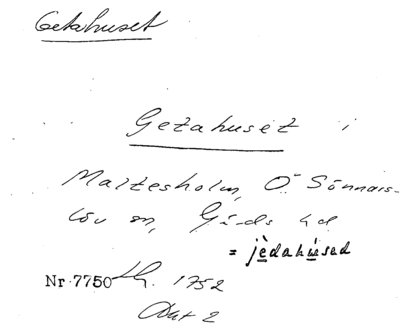 Getahuset
Getahuset i
Maltesholm, Ö. Sönnars-
löv sn, Gärds hd
= jèdahùsad
Nr 7750 Lh. 1752
Akt 2